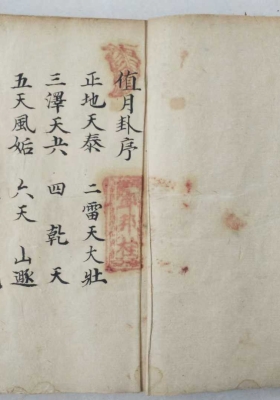 值月卦序
正地天泰 二雷天大壯
三澤天夬 四乾天
五天風姤 六天山遯